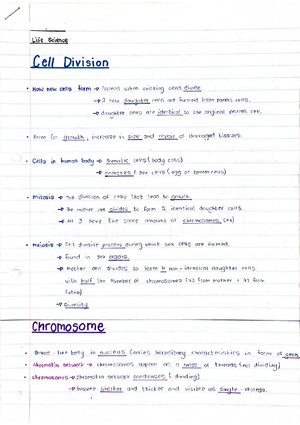 Life Science
Cell Division
• How new cells form → forms when existing cells divide
→ 2 new daughter cells are formed from parent cells.
→ daughter cells are identical to the original parent cell.
• Form for growth, increase in size and repair of damaged tissues.
• Cells in human body → somatic cells (body cells)
→ gametes / sex cells (egg or sperm cells)
• mitosis → the division of cells that lead to growth.
→ the mother cell divides to form 2 identical daughter cells.
→ All 3 have the same amount of chromosomes
• meiosis → Cell division process during which sex cells are formed.
→ found in sex organs.
→ mother cell divides to form 4 non-identical daughter cells
with half the number of chromosomes (23 from mother + 23 from
father)
→ Diversity
Chromosome
• thread-like body in nucleus carries hereditary characteristics in form of genes
• chromatin network → chromosomes appear as a mass of threads (not dividing)
• chromosomes → chromatin network condenses (dividing)
→ become shorter and thicker and visible as single-strands.